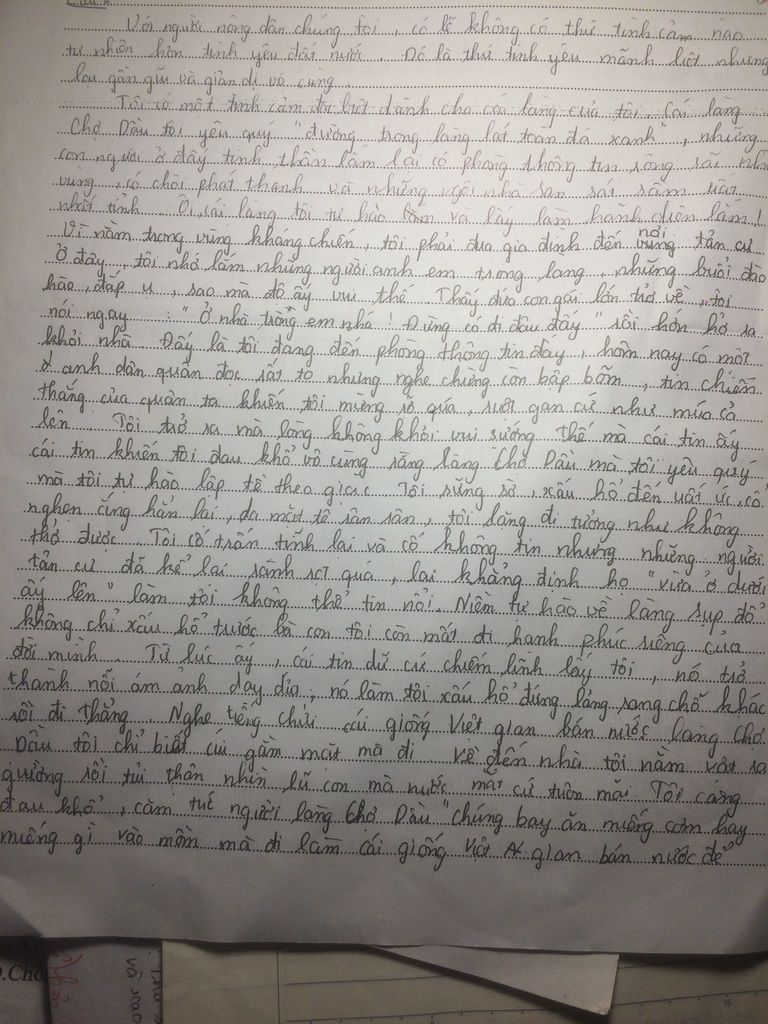 Câu 2
Với người nông dân chúng tôi, có lẽ không có thứ tình cảm nào
tự nhiên hơn tình yêu đất nước. Đó là thứ tình yêu mãnh liệt nhưng
lại gần gũi và giản dị vô cùng.
Tôi có một tình cảm đặc biệt dành cho cái làng của tôi. Cái làng
Chợ Dầu tôi yêu quý "đường trong làng lát toàn đá xanh", những
con người ở đây tinh thần lắm lại có phòng thông tin rộng rãi nhất
vùng, có chòi phát thanh và những ngôi nhà san sát sầm uất
nhất tỉnh. Ôi cái làng tôi tự hào lắm và lấy làm hãnh diện lắm!
Vì nằm trong vùng kháng chiến, tôi phải đưa gia đình đến nơi tản cư
Ở đây, tôi nhớ lắm những người anh em trong làng, những buổi đào
hào, đắp ụ, sao mà độ ấy vui thế. Thấy đứa con gái lớn trở về, tôi
nói ngay: "Ở nhà trông em nhá! Đừng có đi đâu đấy" rồi hớn hở ra
khỏi nhà. Đấy là tôi đang đến phòng thông tin đấy, hôm nay có một
anh dân quân đọc rất to nhưng nghe chừng còn bập bõm, tin chiến
thắng của quân ta khiến tôi mừng rỡ qúa, ruột gan cứ như múa cả
lên. Tôi trở ra mà lòng không khỏi vui sướng. Thế mà cái tin ấy
cái tin khiến tôi đau khổ vô cùng rằng làng Chợ Dầu mà tôi yêu quý
mà tôi tự hào lập tề theo giặc. Tôi sững sờ, xấu hổ đến uất ức, cổ
nghẹn ắng hẳn lại, da mặt tê rân rân, tôi lặng đi tưởng như không
thở được. Tôi cố trấn tĩnh lại và cố không tin nhưng những người
tản cư đã kể lại rành rọt quá, lại khẳng định họ "vừa ở dưới
ấy lên" làm tôi không thể tin nổi. Niềm tự hào về làng sụp đổ
không chỉ xấu hổ trước bà con tôi còn mất đi hạnh phúc riêng của
đời mình. Từ lúc ấy, cái tin dữ cứ chiếm lĩnh lấy tôi, nó trở
thành nỗi ám ảnh day dứa, nó làm tôi xấu hổ đứng lảng sang chỗ khác
rồi đi thẳng. Nghe tiếng chửi cái giống Việt gian bán nước làng Chợ
Dầu tôi chỉ biết cúi gằm mặt mà đi. Về đến nhà tôi nằm vật ra
giường rồi tủi thân nhìn lũ con mà nước mắt cứ tuôn mãi. Tôi càng
đau khổ, căm tức người làng Chợ Dầu "chúng bay ăn miếng cơm hay
miếng gì vào mồm mà đi làm cái giống Việt gian bán nước để